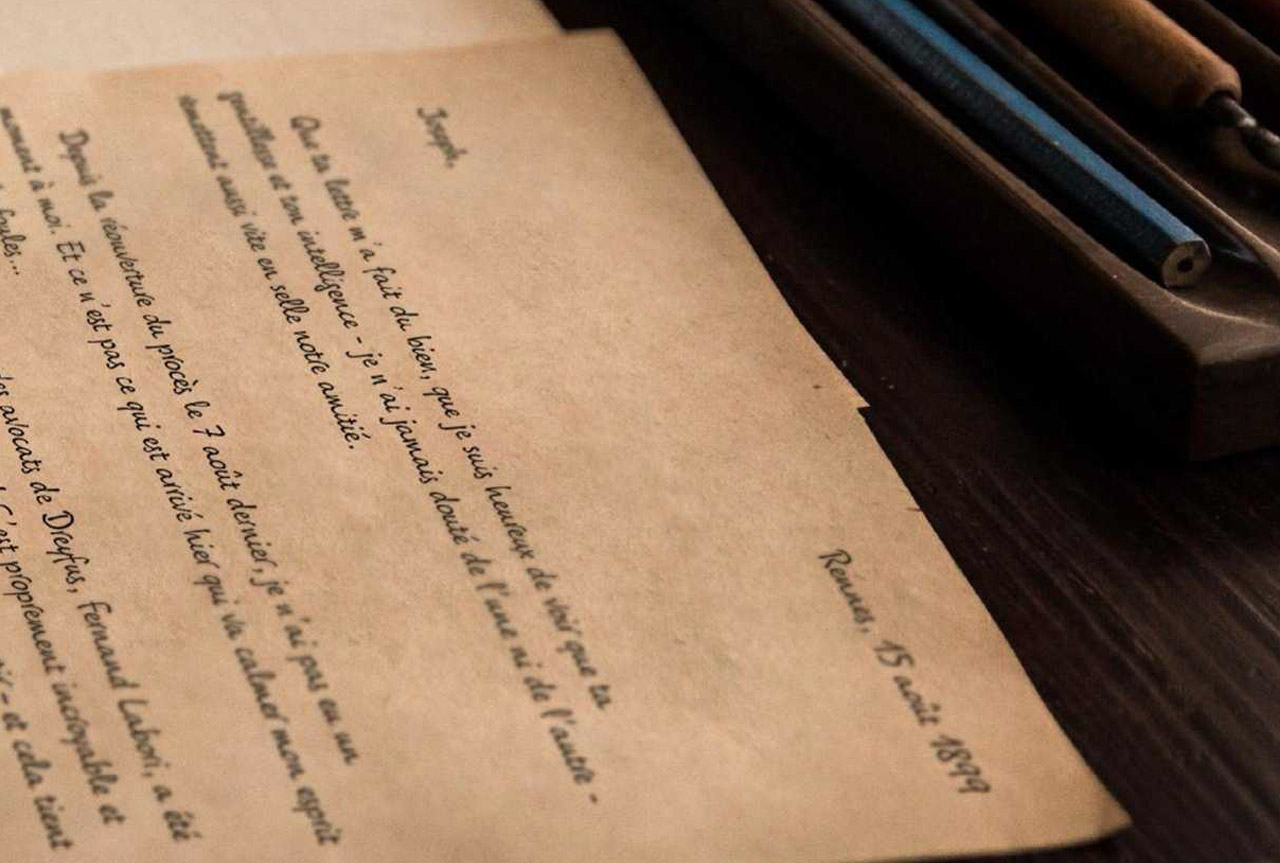 Rennes, 15 août 1899
Joseph,
Que ta lettre m'a fait du bien, que je suis heureux de voir que ta
gentillesse et ton intelligence - je n'ai jamais douté de l'une ni de l'autre -
remettent aussi vite en selle notre amitié.
Depuis la réouverture du procès le 7 août dernier, je n'ai pas eu un
moment à moi. Et ce n'est pas ce qui est arrivé hier qui va calmer mon esprit
foules...
des avocats de Dreyfus, Fernand Labori, a été
C'est proprement incroyable et
et cela tient